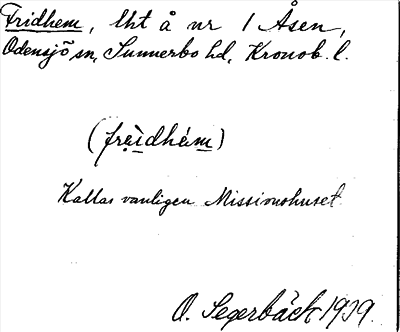 Fridhem, lht å nr 1 Åsen,
Odensjö sn, Sunnerbo hd, Kronob. l.
(frìdhém)
Kallas vanligen Missionshuset.
O. Segerbäck 1929.